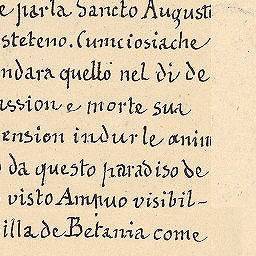 e parla Sancto Augusti
steteno. Cumciosiache
ndara quello nel di de
assion e morte sua
ension indurle anim
da questo paradiso de
visto Ampuo visibil-
illa de Betania come